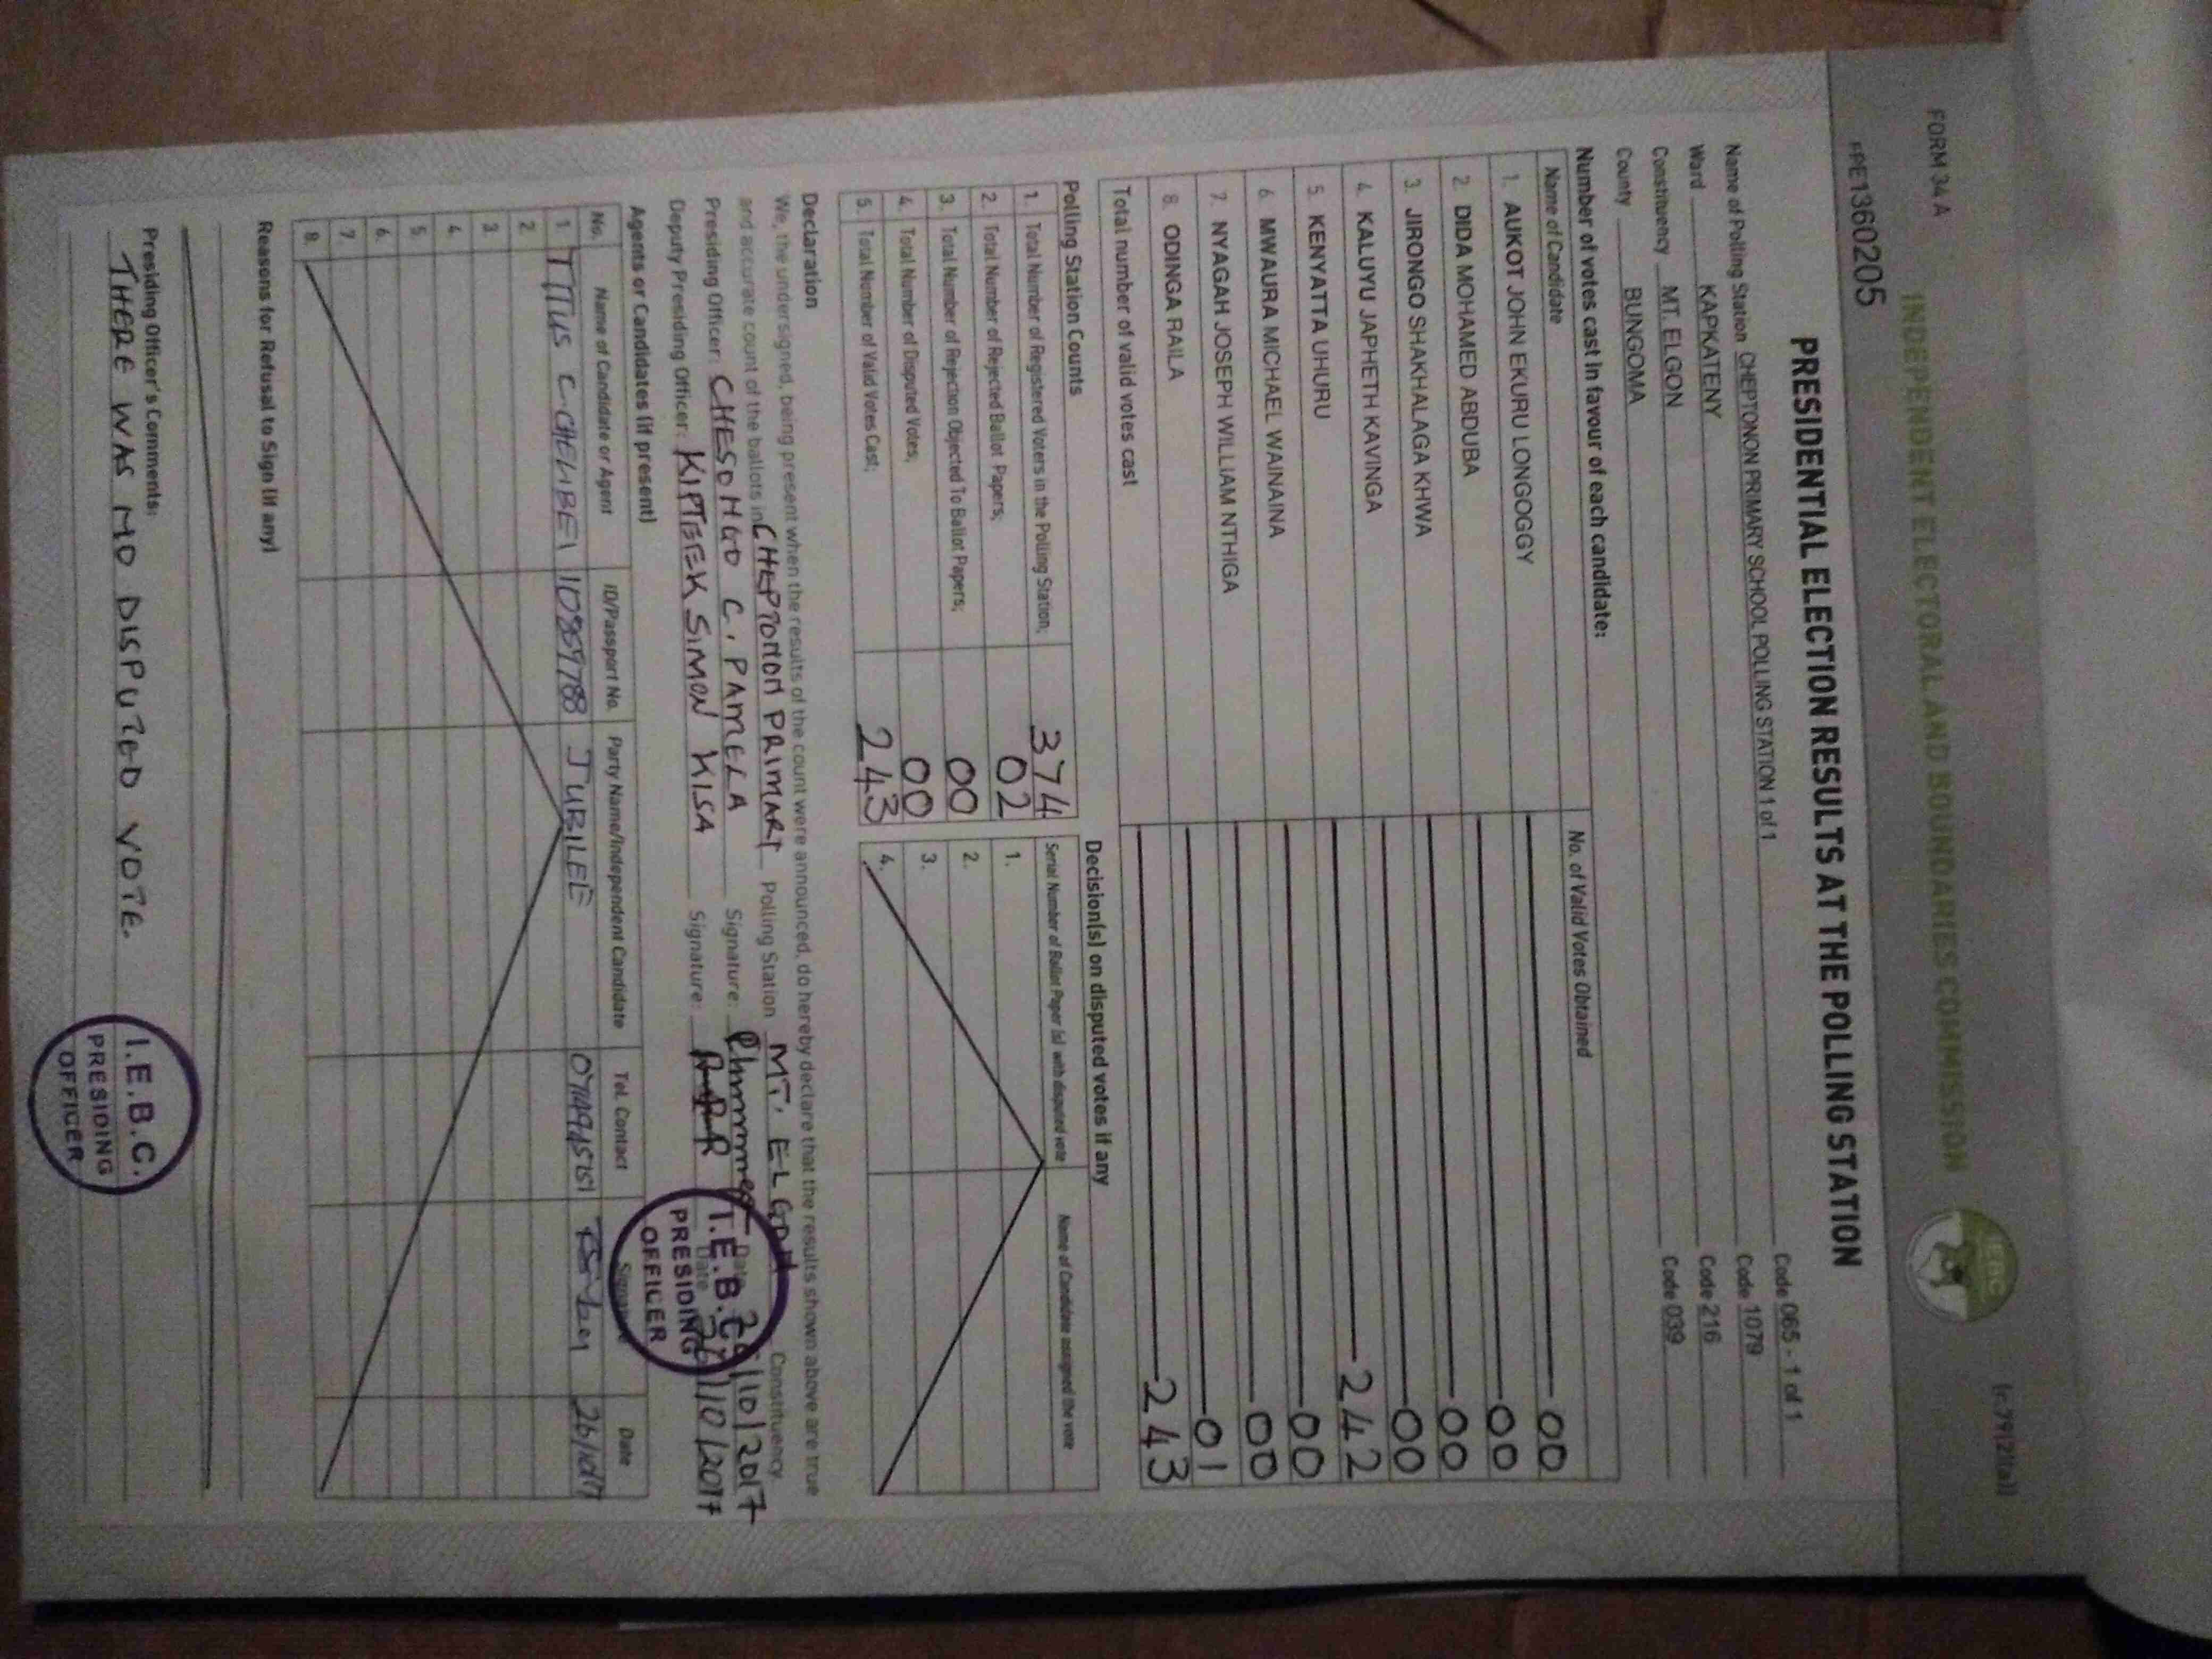 FORM 34 A
INDEPENDENT ELECTORAL AND BOUNDARIES COMMISSION
IEBC
(r.79(2)(a))
PRESIDENTIAL ELECTION RESULTS AT THE POLLING STATION
Name of Polling Station CHEPTONON PRIMARY SCHOOL POLLING STATION 1 of 1 Code 065 - 1 of 1
Ward KAPKATENY Code 1079
Constituency MT. ELGON Code 216
County BUNGOMA Code 039
Number of votes cast in favour of each candidate:
Name of Candidate No. of Valid Votes Obtained
1. AUKOT JOHN EKURU LONGOGGY 00
2. DIDA MOHAMED ABDUBA 00
3. JIRONGO SHAKHALAGA KHWA 00
4. KALUYU JAPHETH KAVINGA 00
5. KENYATTA UHURU 242
6. MWAURA MICHAEL WAINAINA 00
7. NYAGAH JOSEPH WILLIAM NTHIGA 00
8. ODINGA RAILA 01
Total number of valid votes cast 243
Polling Station Counts
1. Total Number of Registered Voters in the Polling Station; 374
2. Total Number of Rejected Ballot Papers; 02
3. Total Number of Rejection Objected To Ballot Papers; 00
4. Total Number of Disputed Votes; 00
5. Total Number of Valid Votes Cast; 243
Decision(s) on disputed votes if any
Serial Number of Ballot Paper (s) with disputed vote Name of Candidate assigned the vote
1.
2.
3.
4.
Declaration
We, the undersigned, being present when the results of the count were announced, do hereby declare that the results shown above are true
and accurate count of the ballots in CHEPTONON PRIMARY Polling Station MT. ELGON Constituency
Presiding Officer: CHESONGO C. PAMELA Signature: Date 26/10/2017
Deputy Presiding Officer: KIPTEEK SIMON KISA Signature: Date 26/10/2017
I.E.B.C.
PRESIDING
OFFICER
Agents or Candidates (if present)
No. Name of Candidate or Agent ID/Passport No. Party Name/Independent Candidate Tel. Contact Signature Date
1 TITUS JUBILEE 26/10/17
2.
3.
4.
5.
6.
7.
8.
Reasons for Refusal to Sign (if any)
Presiding Officer's Comments:
THERE WAS NO DISPUTED VOTE.
I.E.B.C.
PRESIDING
OFFICER